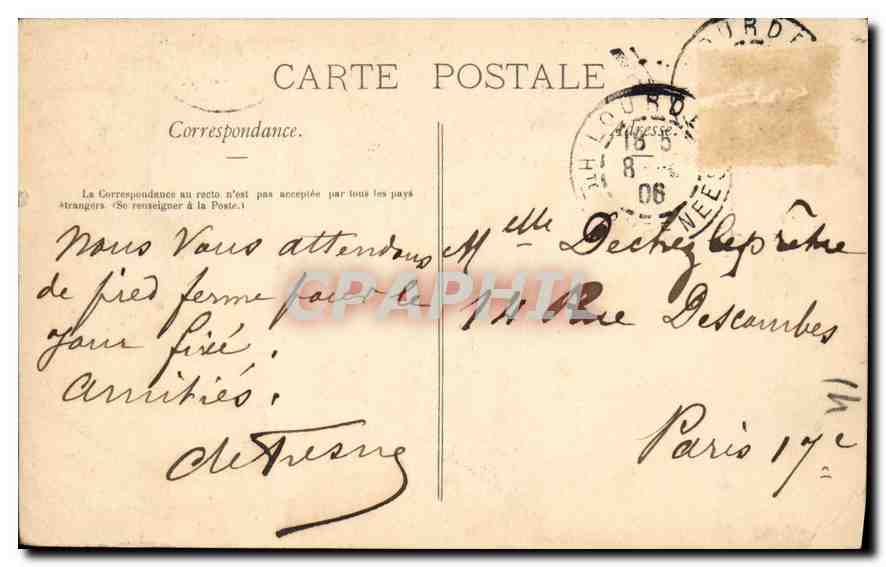 CARTE POSTALE
Correspondance.
Adresse.
La Correspondance au recto n'est pas acceptée par tous les pays
étrangers. (Se renseigner à la Poste.)
Nous Vous attendons
de pied ferme pour le
jour fixé.
Amitiés.
Melle Dechezleprêtre
14 Rue Descombes
Paris 17e
LOURDES
LOURDE
18 5
8
06
NEES
CPAPHIL